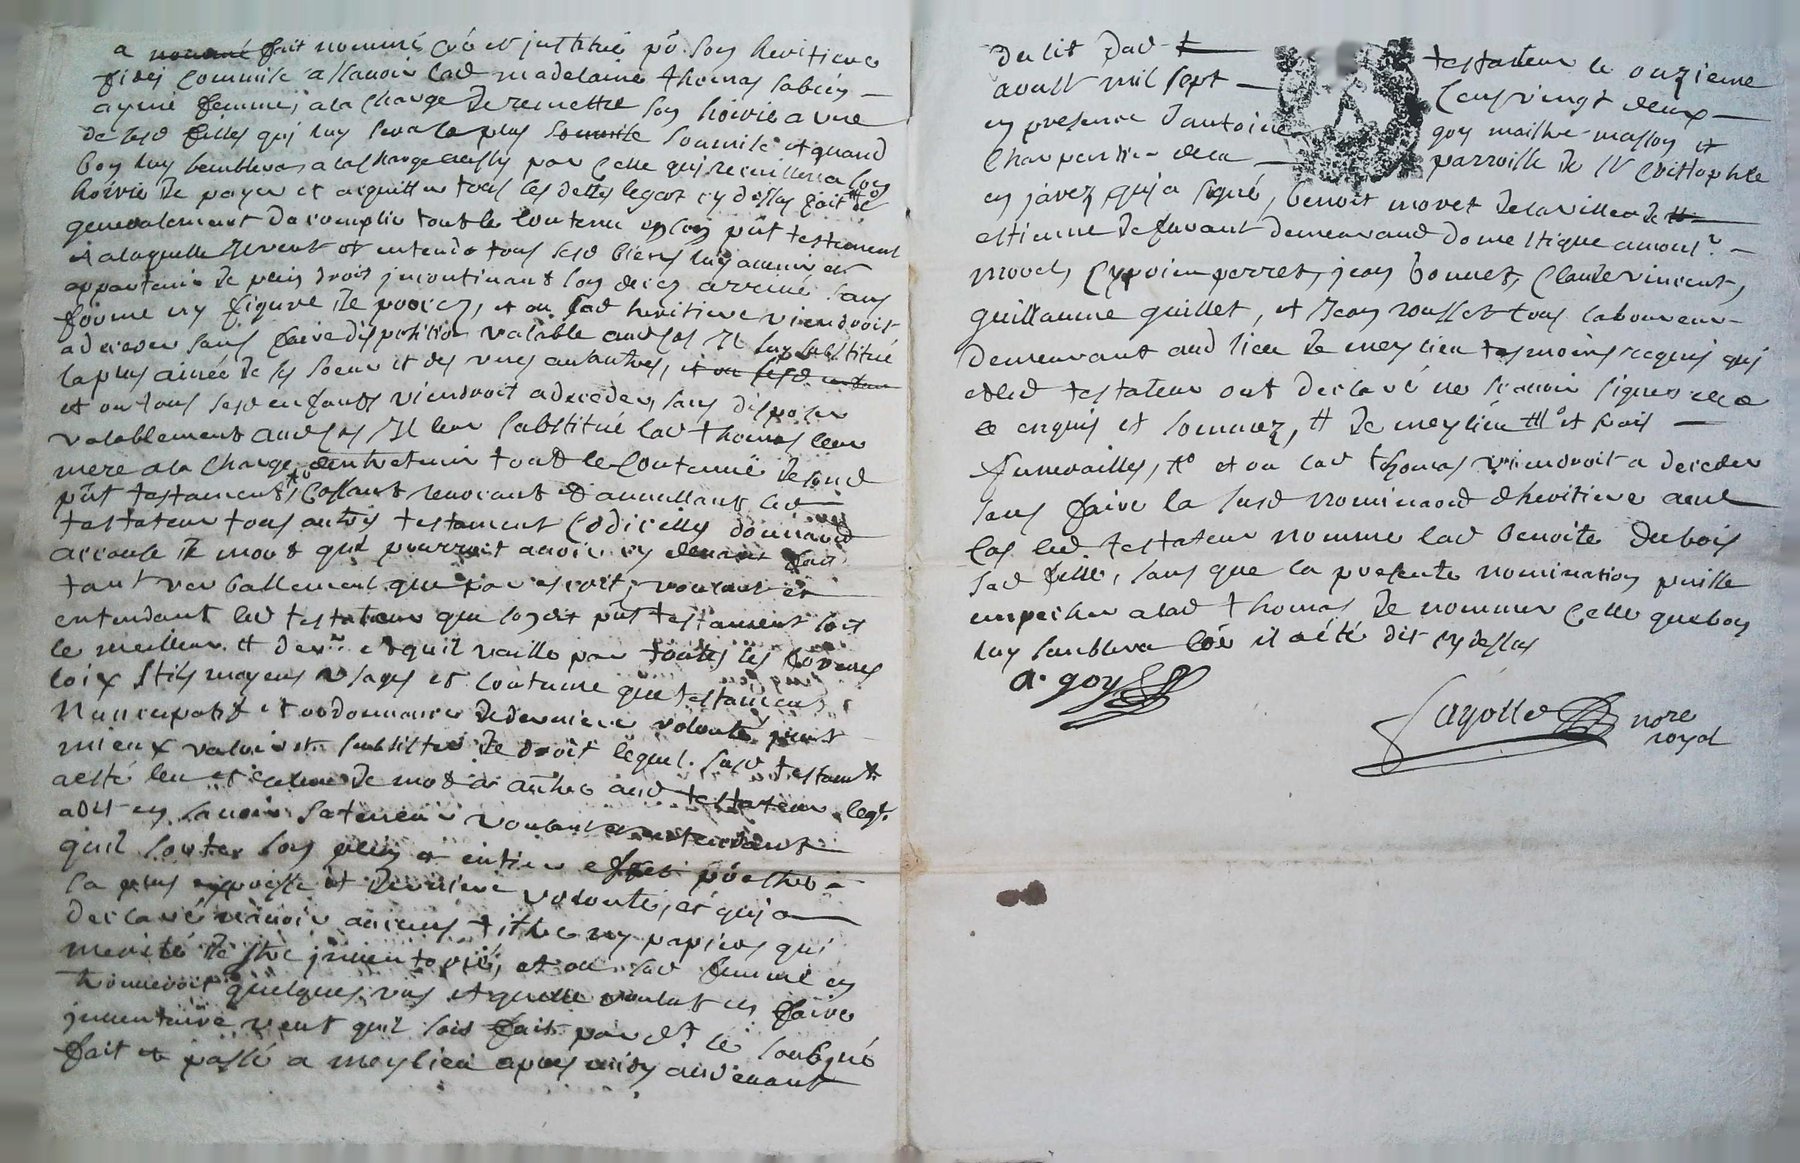 a nommé fait nommé créé et justitué po.r son heritiere
fidei commise assauoir lad madelaine thomas sa bien
aymé femme, a la charge de remettre son hoirie a vne
de sesd filles qui luy sera la plus soumise et quand
bon luy semblera a la charge aussy par celle qui recuillera son
hoirie de payer et acquitter tous les dettes legat cy dessus fait et
generalement daccomplir tout le contenu en son pnt testament
a laquelle Il veut et entend tous sesd biens luy auenir et
appartenir de plein droit incontinant son deces arriué sans
forme ny figure de procez, et ou lad heritiere viendroit
a deceder sans faire disposition valable aud cas Il luy substitué
la plus ainée de ses soeur et des vnes au autres,
et ou tous sesd enfants viendroit a deceder, sans disposer
valablement aud cas Il leur substitué lad thomas leur
mere a la charge dentretenir tout le contenuë de sond
pnt testament, Cassant reuocant & annullant led
testateur tous autres testament Codicilles donnaond
a cause de mort qué pourroit auoir cy deuant fait
tant verballement que par escrit, voulant et
entendant led testateur que sondit pnt testament soit
le meilleur et der.er et quil vaille par toutes les formes
loix stils moyens vsages et coutume que testament
Nuncupatif et ordonnance de derniere volonté peut
mieux valoir et subsister de droit lequel susd testam.t
a esté leu et relue de mot a authre aud testateur leq.l
a dit en
quil sorte son plein et entier effet po.r estre
sa plus expresse et derniere volonté, et qui a
declaré nauoir aucuns tithre ny papiers qui
merité destre jnuentorié, et ou sad femme en
trouueroit quelques vns et quelle voulut en faire
jnuentaire veut quil soit fait par d.t le soubsigné
fait et passé a meylieu apres midy au deuant
du lit dud testateur le onzieme
aoust mil sept Cens vingt deux
en presence dantoine goy maithre masson et
Charpentier de la parroisse de St Cristophle
en jarez qui a signé, benoit moret de la ville de
estienne de furant demeurand domestique
morel, Cyprien perret, jean bonnet, Claude vincent,
guillaume guillet, et Jean rousset tous laboureur
demeurant aud lieu de meylieu tesmoins requis qui
et led testateur ont declaré ne scauoir signer de
ce enquis et sommez, # de meylieu et frais
funerailles, et ou lad thomas viendroit a deceder
sans faire la susd nominaond dheritiere aud
Cas led. testateur nomme lad benoite dubois
sad fille, sans que la presente nomination puisse
empecher a lad thomas de nommer celle que bon
luy semblera Coe il a été dit cy dessus
a. goy
Jayolle nore
royal